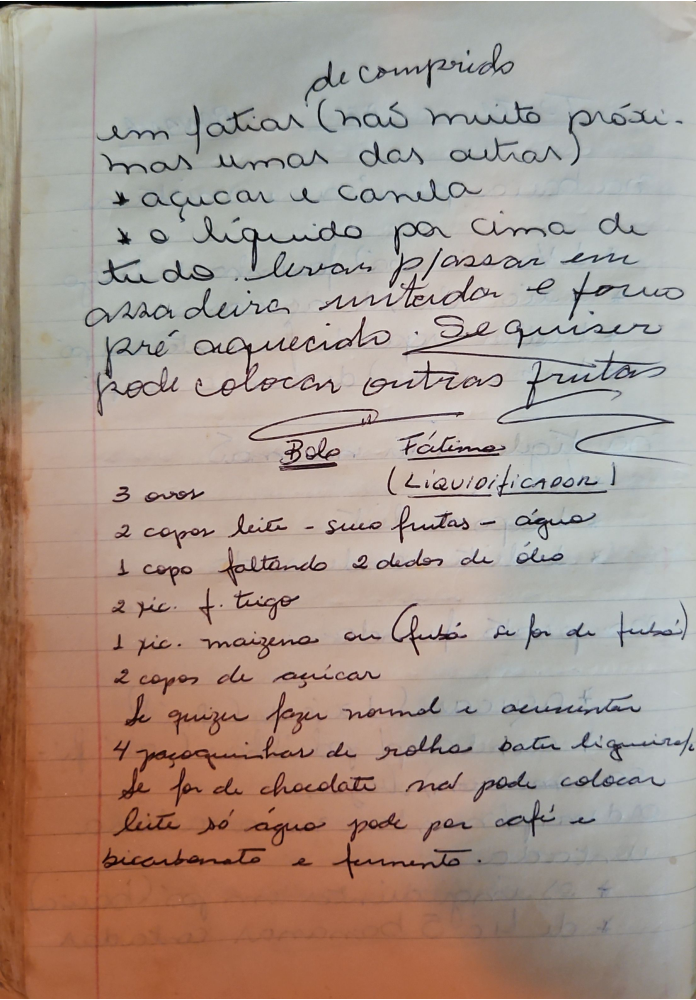 de comprido
em fatias (não muito próxi-
mas umas das outras)
* açucar e canela
* o líquido por cima de
tudo. levar p/assar em
assadeira untada e forno
pré aquecido. Se quiser
pode colocar outras frutas
Bolo Fátima
(LIQUIDIFICADOR)
3 ovos
2 copos leite - suco frutas - água
1 copo faltando 2 dedos de óleo
2 xic. f. trigo
1 xic. maizena ou (fubá se for de fubá)
2 copos de açúcar
Se quizer fazer normal e acrescentar
4 paçoquinhas de rolha bater ligueira/e
Se for de chocolate não pode colocar
leite só água pode por café e
bicarbonato e fermento.